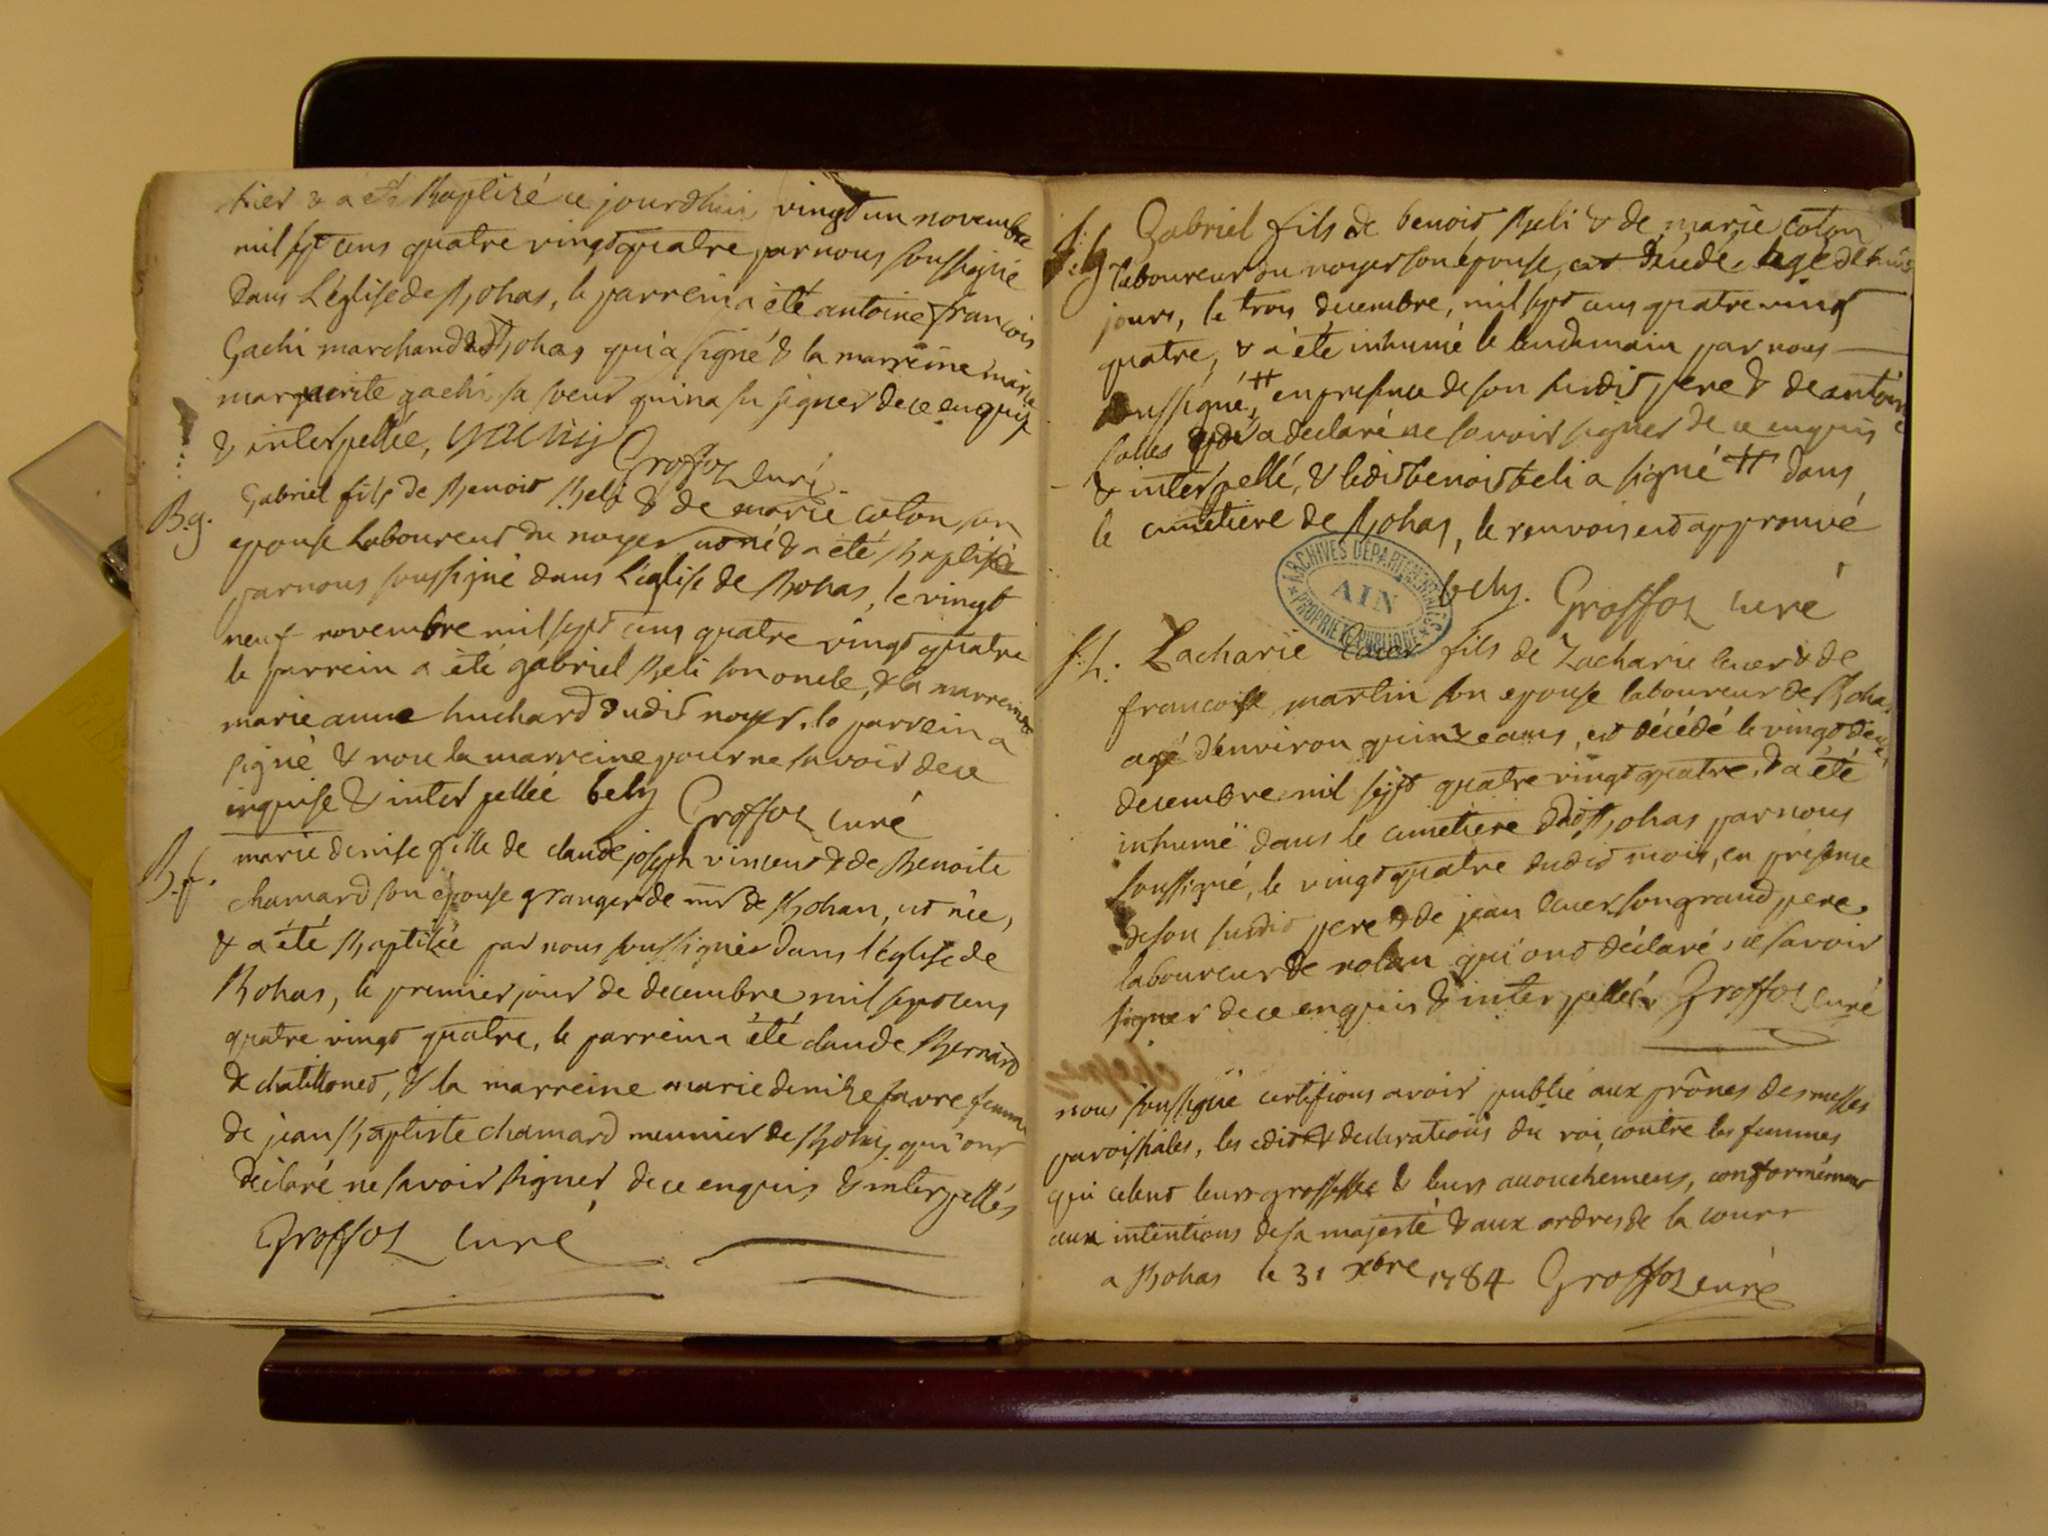 hier & a été Baptisé ce jourdhui vingt un novembre
mil sept cens quatre vingt quatre par nous soussigné
dans L'église de Bohas, le parrein a été antoine françois
Gachi marchand de Bohas qui a signé & la marreine marie
marguerite gachi sa soeur qui n'a su signer de ce enquise
& interpellée, gachy Groffoz curé
B.g. Gabriel fils de Benoit Beli & de marie coton son
epouse Laboureur du noyer est né & a été Baptisé
par nous soussigné dans L'église de Bohas, le vingt
neuf novembre mil sept cens quatre vingt quatre
le parrein a été gabriel Beli son oncle, & la marreine
marie anne huchard dudit noyer, le parrein a
signé & non la marreine pour ne savoir de ce
enquise & interpellée bely Groffoz curé
B.f. marie denise fille de claude joseph vincent & de Benoite
chamard son épouse granger de mr de Bohan, est née,
& a été Baptisée par nous soussignés dans l'église de
Bohas, le premier jour de decembre mil sept cens
quatre vingt quatre, le parrein a été claude Bernard
de chatillonet, & la marreine marie denise favre femme
de jean Baptiste chamard meunier de Bohas qui ont
déclaré ne savoir signer de ce enquis & interpellés
Groffoz curé
S:g Gabriel fils de benoit Beli & de marie coton
laboureur du noyer son épouse, est décédé, agé de huit
jours, le trois decembre, mil sept cens quatre vingt
quatre, & a été inhumé le lendemain par nous
soussigné, # en presence de son susdit pere & de antoine
salles qui a declaré ne savoir signer de ce enquis
& interpellé, & ledit benoit beli a signé # dans
le cimetiere de Bohas, le renvoi est approuvé
bely. Groffoz curé
ARCHIVES DÉPARTEMENTALES
AIN
PROPRIÉTÉ PUBLIQUE
S.h. Zacharie fils de Zacharie & de
francoise martin son epouse laboureur de Bohas
agé d'environ quinze ans, est décédé le vingt deux
decembre mil sept quatre vingt quatre, & a été
inhumé dans le cimetiere dudit Bohas par nous
soussigné, le vingt quatre dudit mois, en présence
de son susdit pere & de jean son grand pere
laboureur de qui ont déclaré ne savoir
signer de ce enquis & interpellés Groffoz curé
nous soussigné certifions avoir publié aux prônes des messes
paroissiales, les edits & declarations du roi, contre les femmes
qui celent leurs grossesses & leurs accouchemens, conformément
aux intentions de sa majesté & aux ordres de la cour
a Bohas le 31 xbre 1784 Groffoz curé